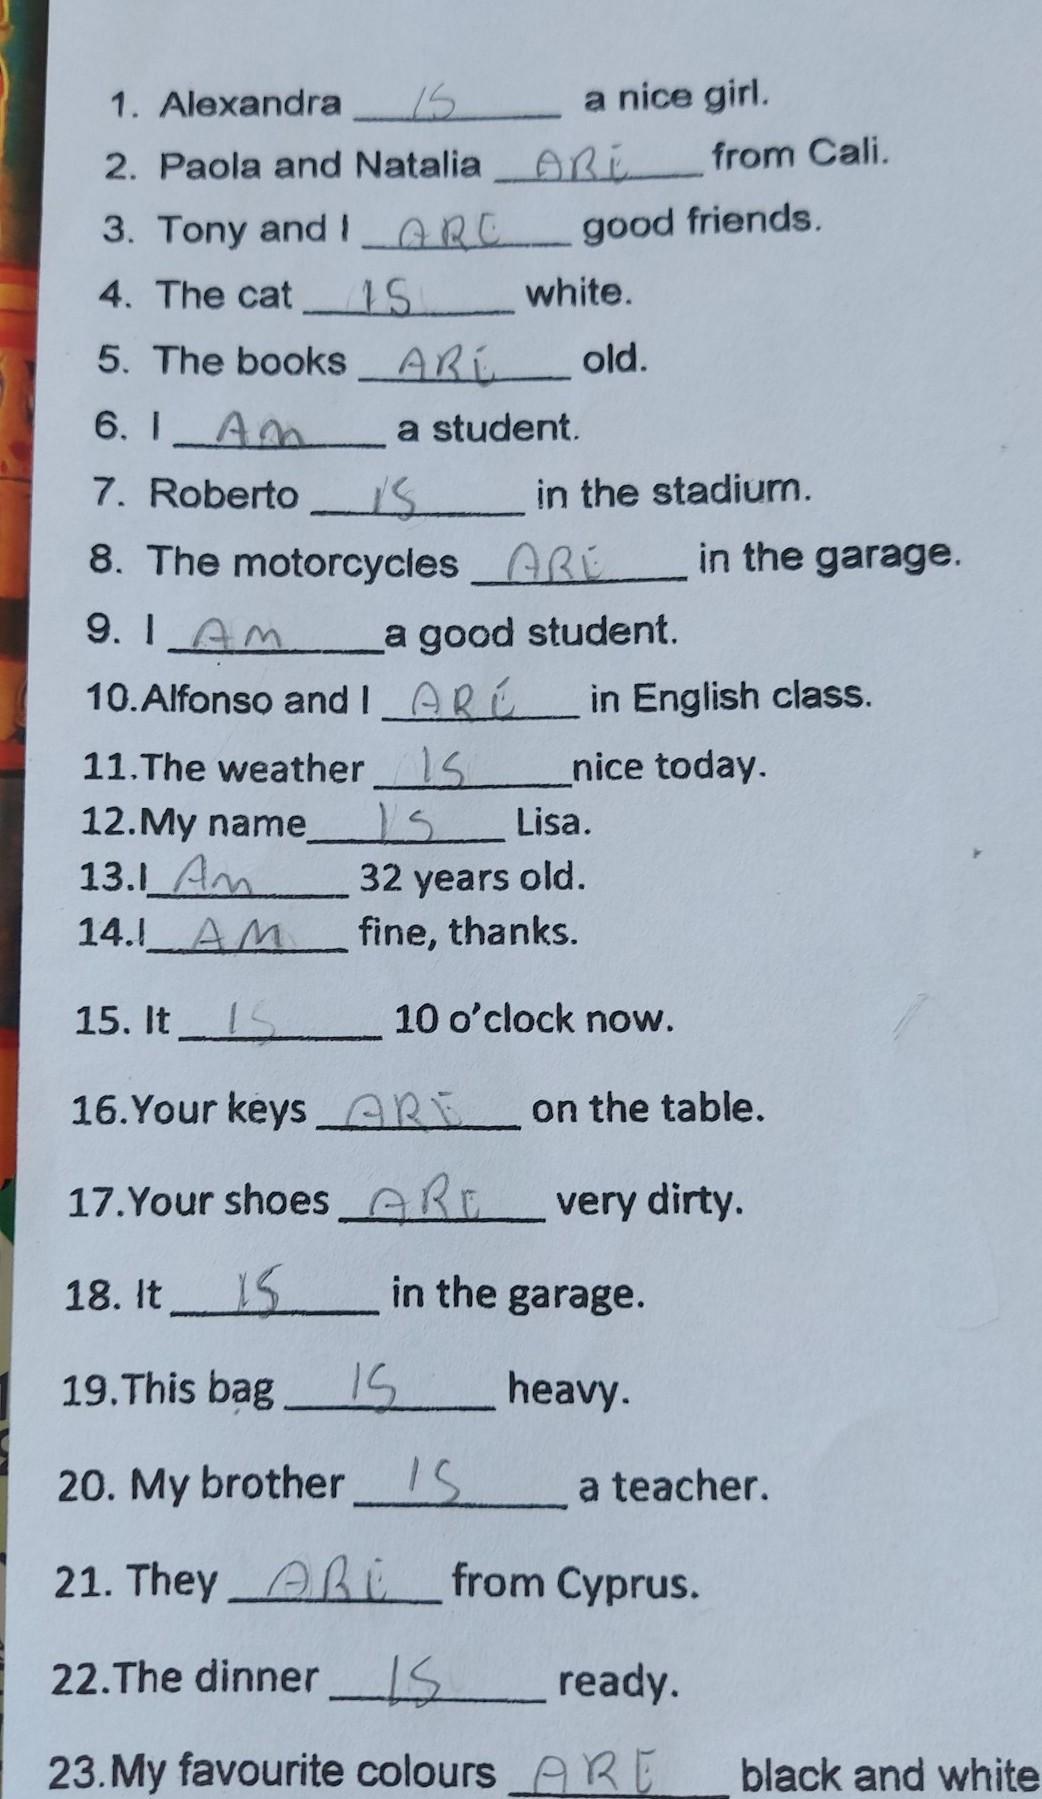 1. Alexandra IS a nice girl.
2. Paola and Natalia ARE from Cali.
3. Tony and I ARE good friends.
4. The cat IS white.
5. The books ARE old.
6. I Am a student.
7. Roberto IS in the stadium.
8. The motorcycles ARE in the garage.
9. I AM a good student.
10.Alfonso and I ARE in English class.
11.The weather IS nice today.
12.My name IS Lisa.
13.I Am 32 years old.
14.I AM fine, thanks.
15. It IS 10 o'clock now.
16.Your keys ARE on the table.
17.Your shoes ARE very dirty.
18. It IS in the garage.
19.This bag IS heavy.
20. My brother IS a teacher.
21. They ARE from Cyprus.
22.The dinner IS ready.
23.My favourite colours ARE black and white